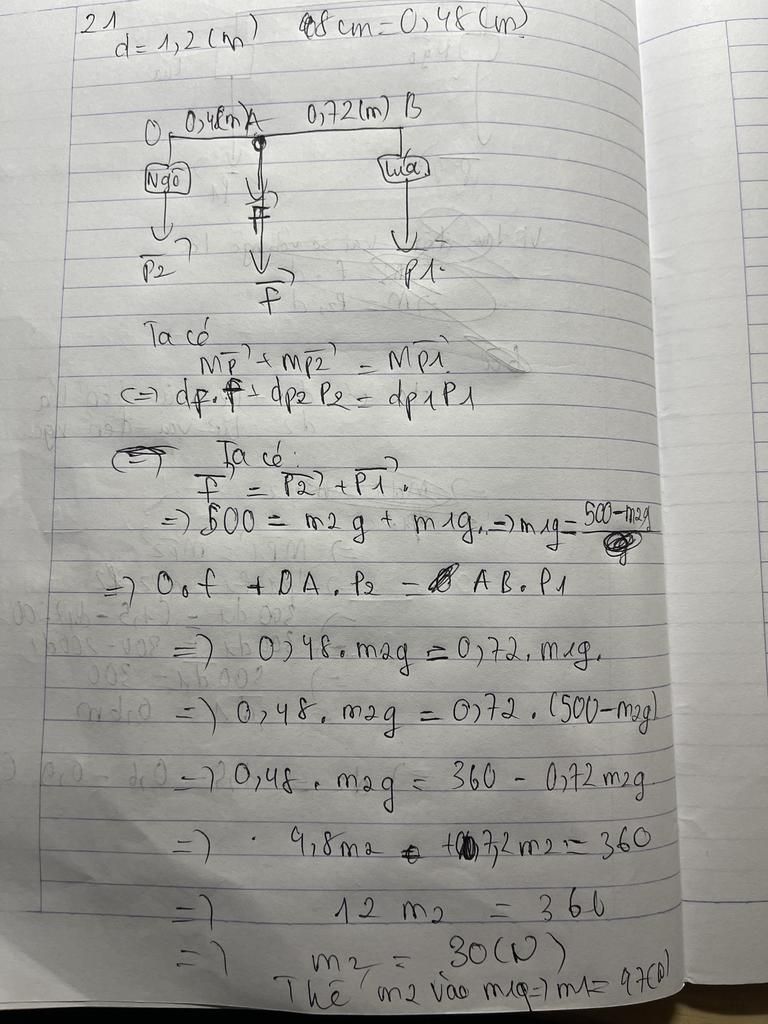 21
d = 1,2 (m) 48 cm = 0,48 (m)
O 0,48(m) A 0,72 (m) B
Ngô Lúa
P
P2 F P1
Ta có
MP + MP2 = MP1
<=> dF.F + dP2 P2 = dP1 P1
Ta có:
F = P2 + P1.
=> 500 = m2 g + m1g. => m1g = 500 - m2g
=> 0.f + OA. P2 = AB. P1
=> 0,48. m2g = 0,72. m1g.
=> 0,48. m2g = 0,72. (500 - m2g)
=> 0,48. m2g = 360 - 0,72 m2g
=> 4,8m2 + 7,2 m2 = 360
=> 12 m2 = 360
=> m2 = 30(N)
Thế m2 vào m1g => m1 = 47(N)